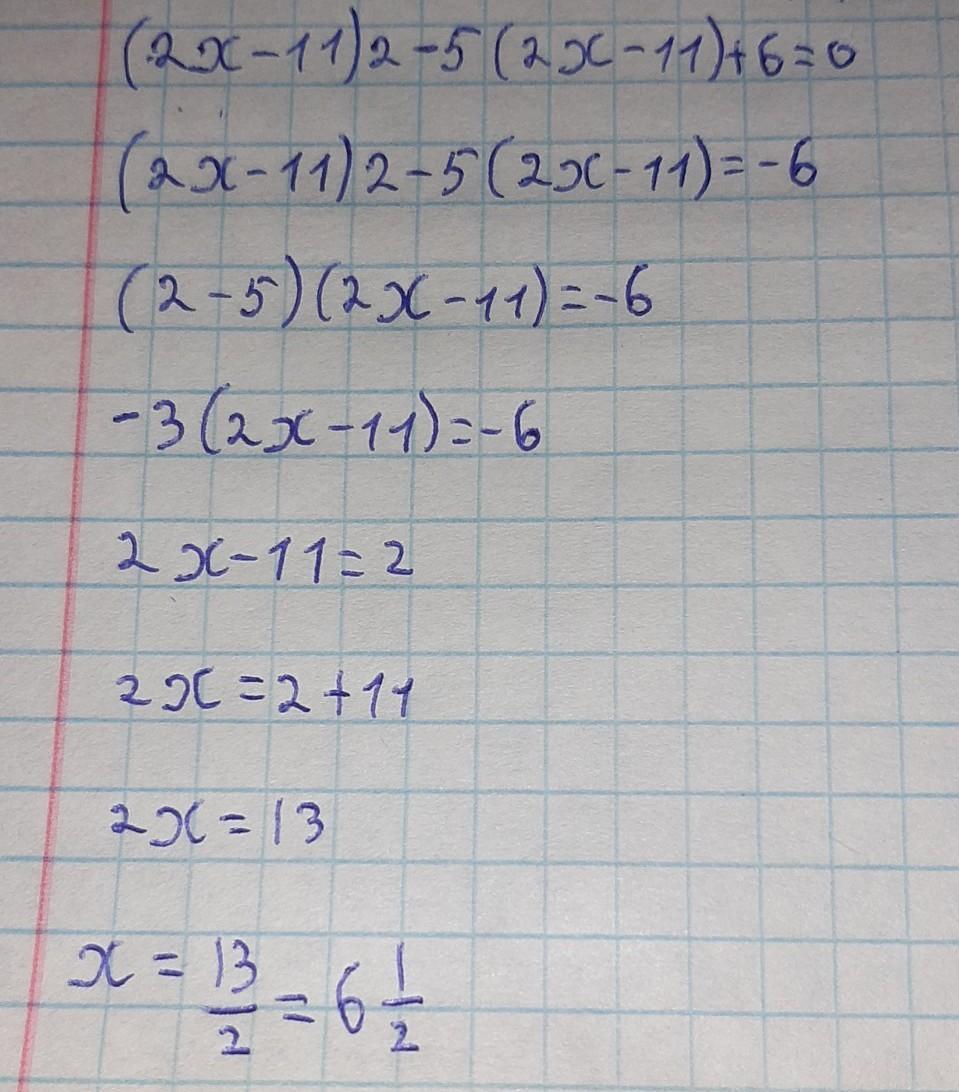 (2x-11)2-5(2x-11)+6=0
(2x-11)2-5(2x-11)=-6
(2-5)(2x-11)=-6
-3(2x-11)=-6
2x-11=2
2x=2+11
2x=13
x = 13/2 = 6 1/2